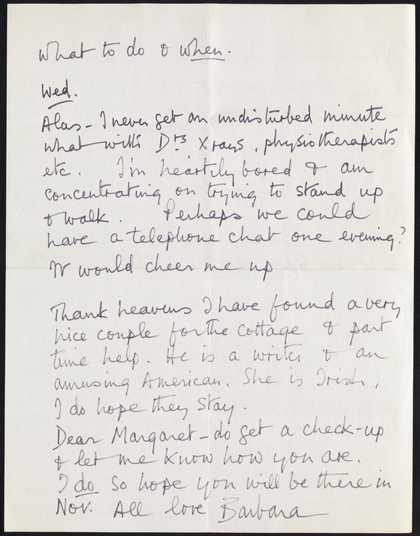 What to do & when.
Wed.
Alas - I never get an undisturbed minute
what with Drs Xrays, physiotherapists
etc. I'm heartily bored & am
concentrating on trying to stand up
& walk. Perhaps we could
have a telephone chat one evening?
It would cheer me up
Thank heavens I have found a very
nice couple for the cottage & part
time help. He is a writer & an
amusing American. She is Irish,
I do hope they stay.
Dear Margaret - do get a check-up
& let me know how you are.
I do so hope you will be there in
Nov. All love Barbara